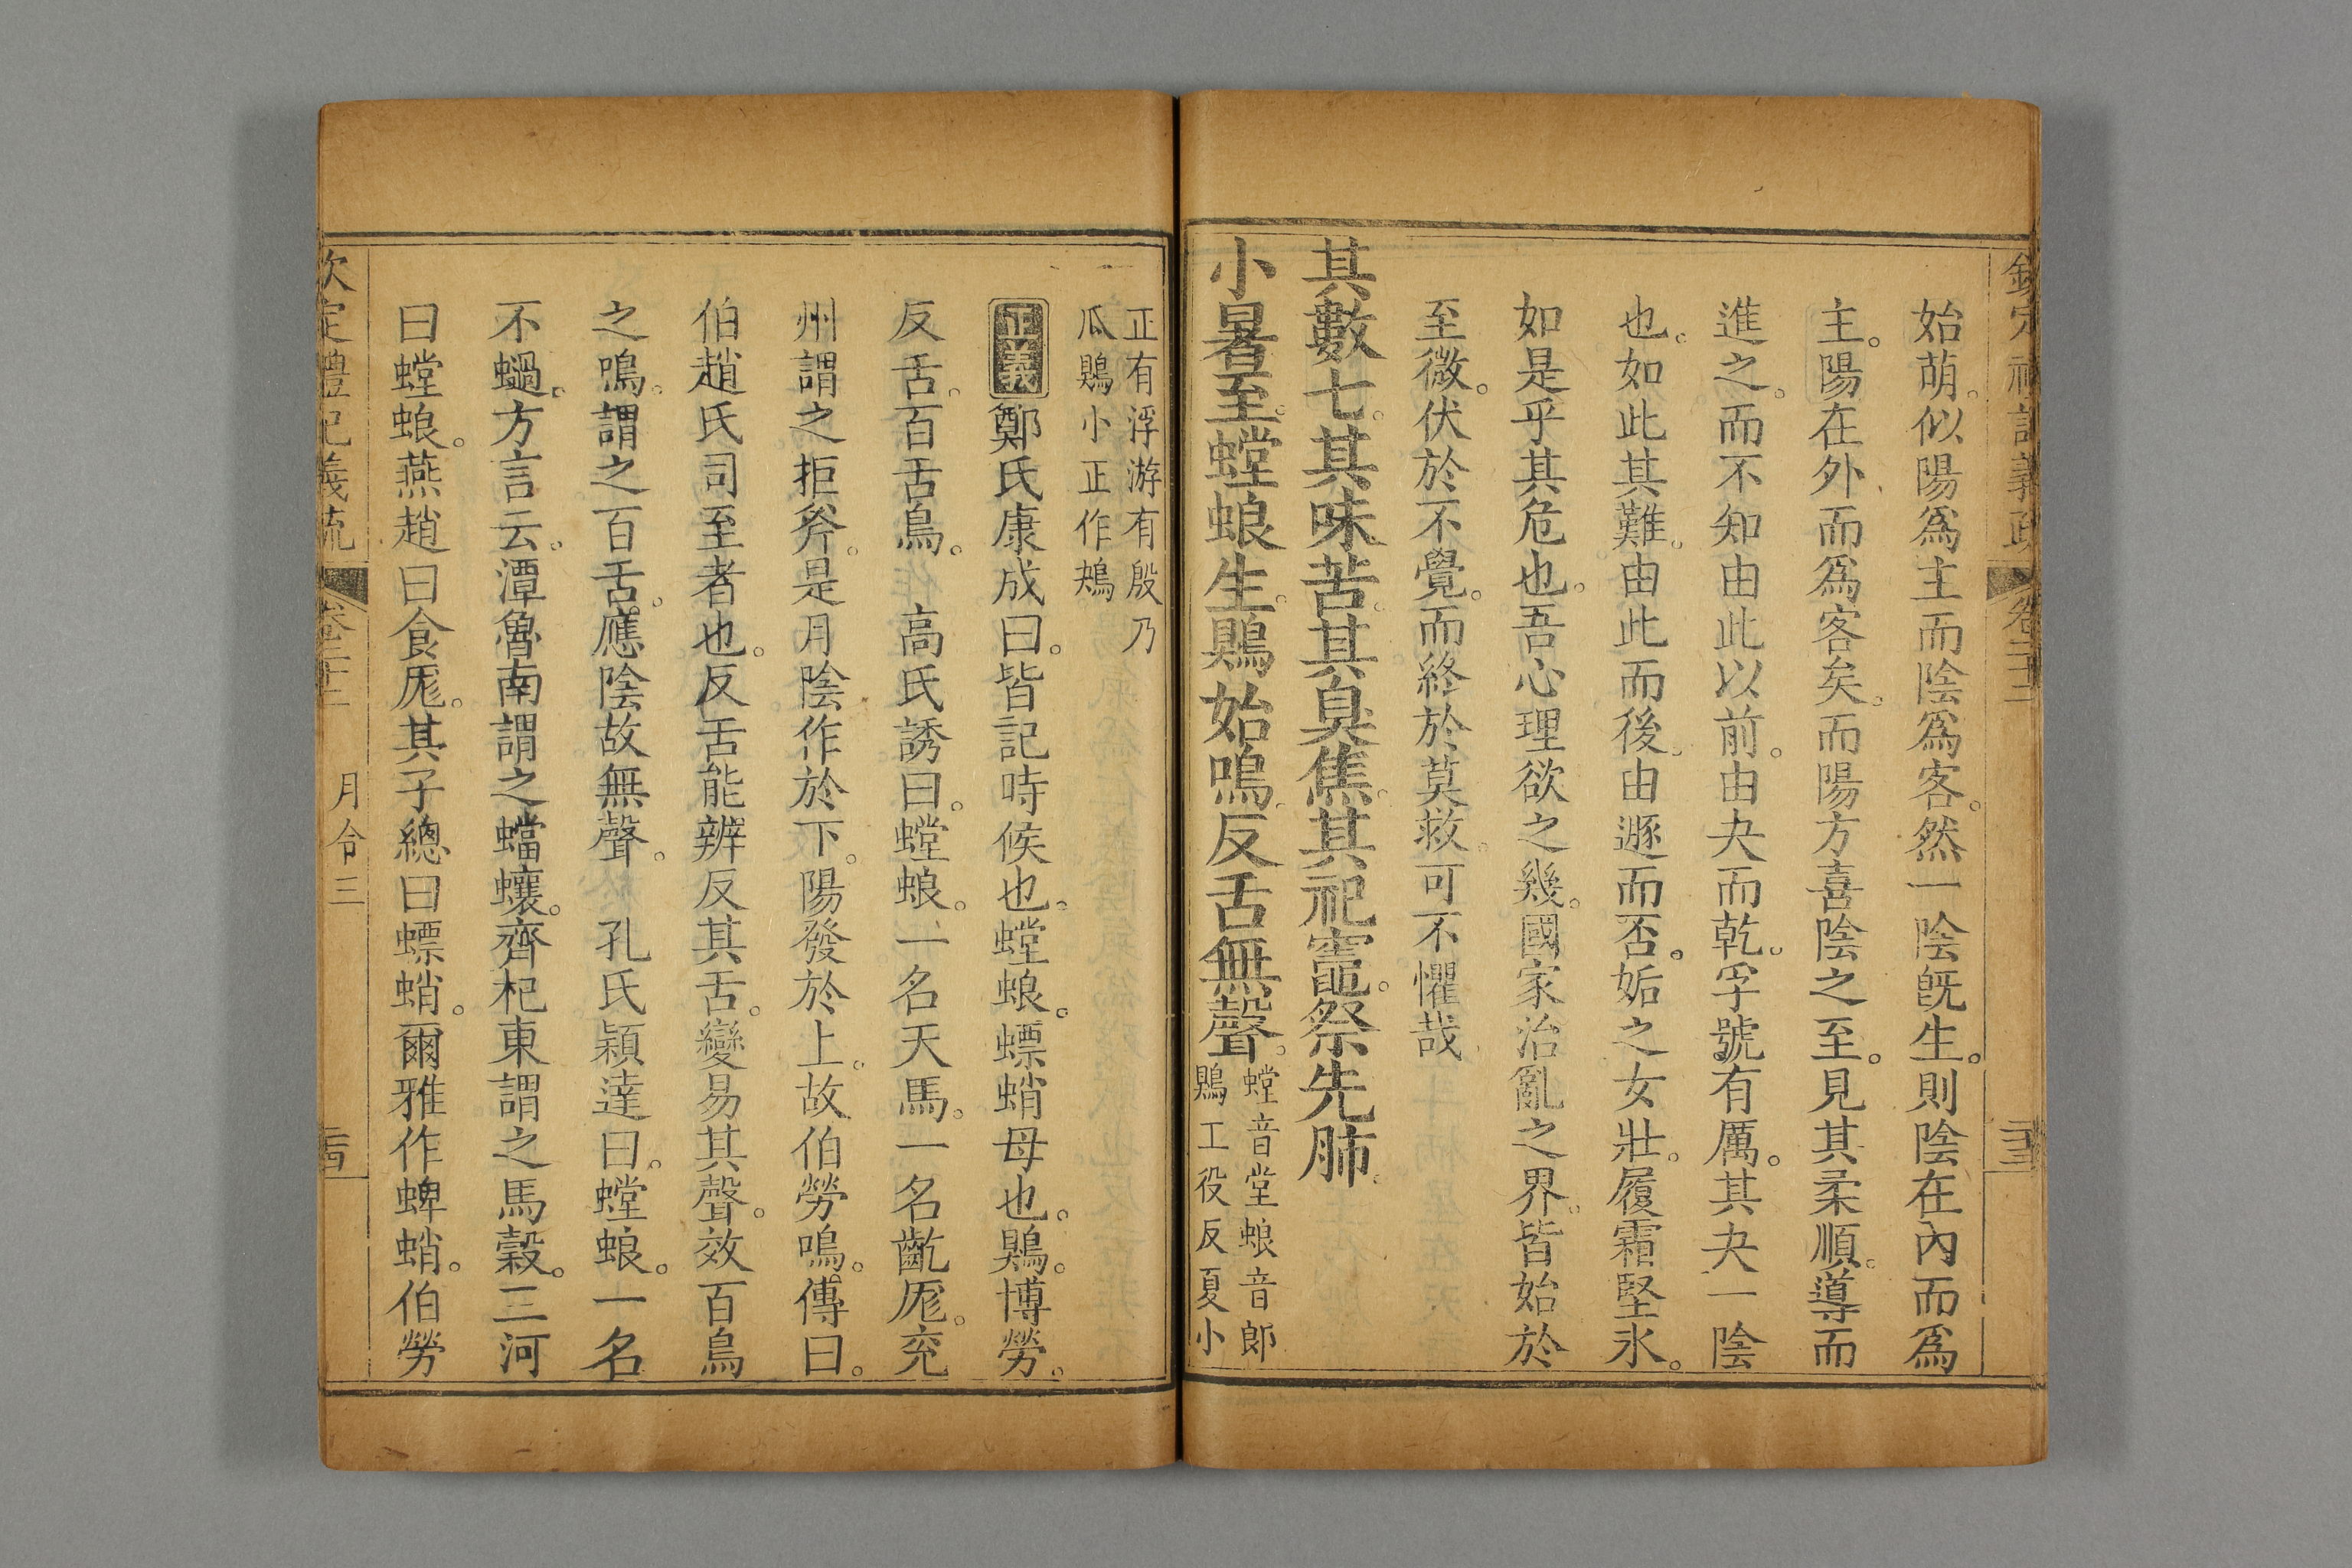 始萌。似陽爲主而陰爲客。然一陰旣生。則陰在內而爲
主。陽在外而爲客矣。而陽方喜陰之至。見其柔順。導而
進之。而不知由此以前。由夬而乾。孚號有厲。其夬一陰
也。如此其難。由此而後。由遯而否。姤之女壯。履霜堅氷。
如是乎其危也。吾心理欲之幾。國家治亂之界。皆始於
至微。伏於不覺。而終於莫救。可不懼哉
其數七。其味苦。其臭焦。其祀竈。祭先肺。
小暑至。螳蜋生。鶪始鳴。反舌無聲。
螳音堂蜋音郎
鶪工役反夏小
正有浮游有殷乃
瓜鶪小正作鴂
正義鄭氏康成曰。皆記時候也。螳蜋。螵蛸母也。鶪。博勞。
反舌。百舌鳥。 高氏誘曰。螳蜋。一名天馬。一名齕疣。兖
州謂之拒斧。是月陰作於下。陽發於上。故伯勞鳴。傳曰。
伯趙氏司至者也。反舌能辨反其舌。變易其聲。效百鳥
之鳴。謂之百舌。應陰故無聲。 孔氏穎達曰。螳蜋。一名
不蟈。方言云。潭魯南謂之蟷蠰。齊杞東謂之馬穀。三河
曰螳蜋。燕趙曰食疣。其子總曰螵蛸。爾雅作蜱蛸。伯勞
欽定禮記義疏
卷二十二 月令三